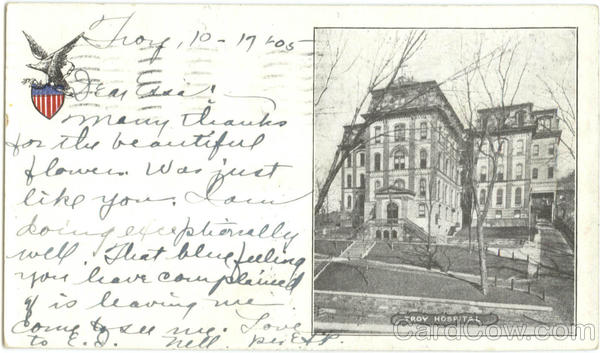 Troy, 10-17-05
Dear Essie:
Many thanks
for the beautiful
flowers. Was just
like you. I am
doing exceptionally
well. That blue feeling
you have complained
of is leaving me
Come to see me. Love
to E. D. Nell.
TROY HOSPITAL
CardCow.com